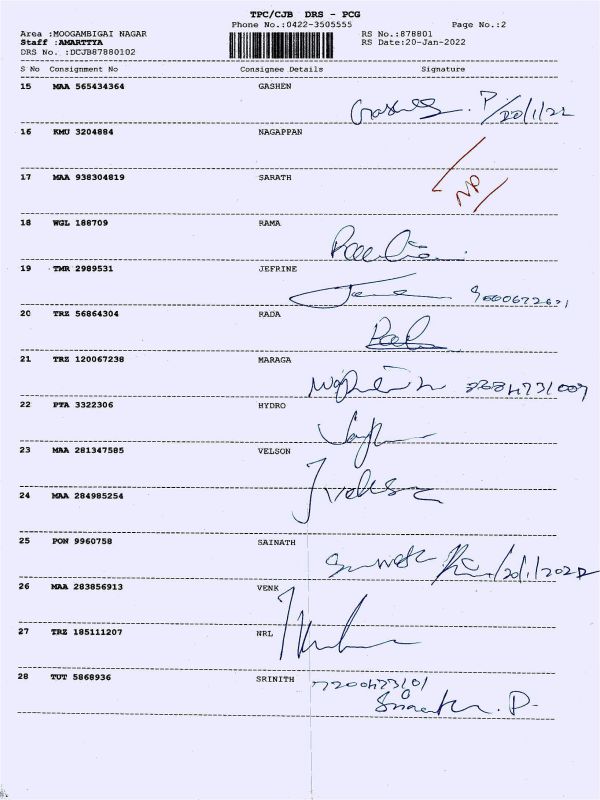 TPC/CJB DRS - PCG
Phone No.:0422-3505555 Page No.:2
Area :MOOGAMBIGAI NAGAR RS No.:878801
Staff :AMARTTYA RS Date:20-Jan-2022
DRS No. :DCJB87880102
S No Consignment No Consignee Details Signature
15 MAA 565434364 GASHEN
P/20/1/22
16 KMU 3204884 NAGAPPAN
17 MAA 938304819 SARATH
NP
18 WGL 188709 RAMA
19 TMR 2989531 JEFRINE
20 TRZ 56864304 RADA
21 TRZ 120067238 MARAGA
22 PTA 3322306 HYDRO
23 MAA 281347585 VELSON
24 MAA 284985254
25 PON 9960758 SAINATH
/20/1/2022
26 MAA 283856913 VENK
27 TRZ 185111207 NRL
28 TUT 5868936 SRINITH
P.